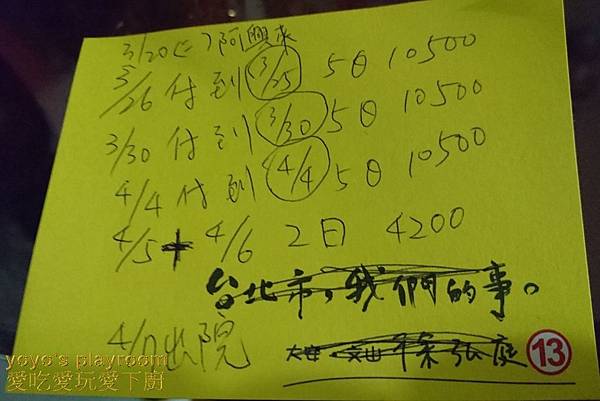 3/20(二)阿興來
3/26 付到 3/25 5日 10500
3/30 付到 3/30 5日 10500
4/4 付到 4/4 5日 10500
4/5 + 4/6 2日 4200
台北市,我們的事。
4/7出院
大安 文山
13
yoyo's playroom
愛吃愛玩愛下廚